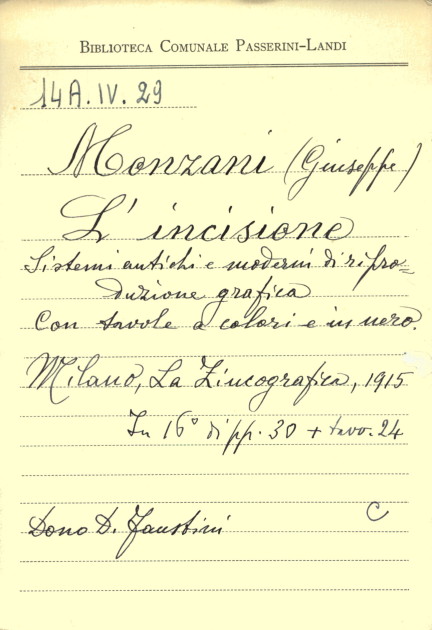 BIBLIOTECA COMUNALE PASSERINI-LANDI
14A.IV.29
Monzani (Giuseppe)
L'incisione
Sistemi antichi e moderni di ripro=
duzione grafica
Con tavole a colori e in nero.
Milano, La Zincografica, 1915
In 16° di pp. 30 + tavv. 24
C
Dono D. Faustini